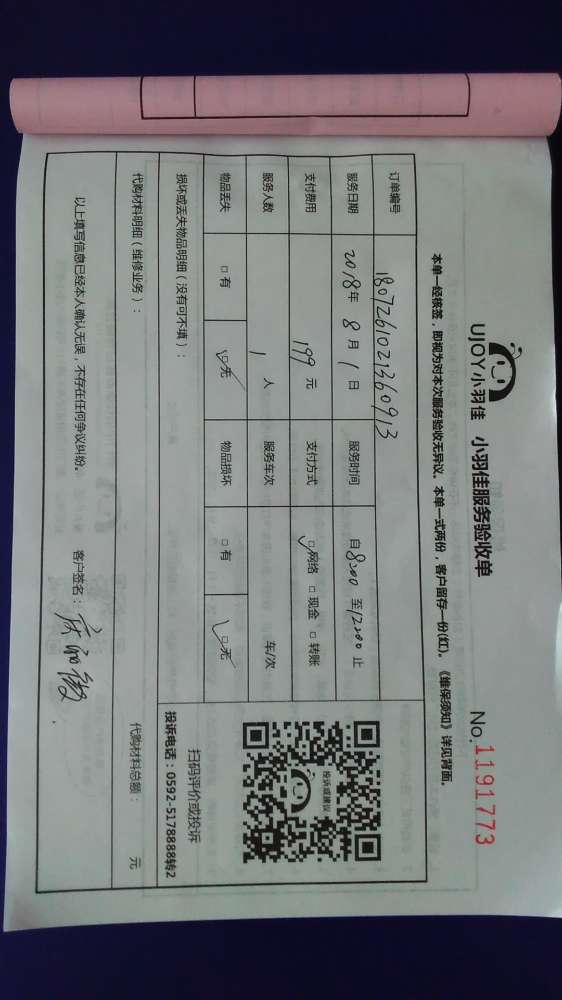 UJOY小羽佳 小羽佳服务验收单 No.1191773
本单一经核签，即视为对本次服务验收无异议。本单一式两份，客户留存一份(红)。《维保须知》详见背面。
订单编号 1807261021360913
服务日期 2018年 8月 1日 服务时间 自8:00至12:00止
支付费用 199元 支付方式 □网络 □现金 □转账
服务人数 1人 服务车次 车/次
物品丢失 □有 □无 物品损坏 □有 □无
投诉或建议
扫码评价或投诉
投诉电话：0592-5178888转2
损坏或丢失物品明细（没有可不填）：
代购材料明细（维修业务）： 代购材料总额： 元
以上填写信息已经本人确认无误，不存在任何争议纠纷。 客户签名：